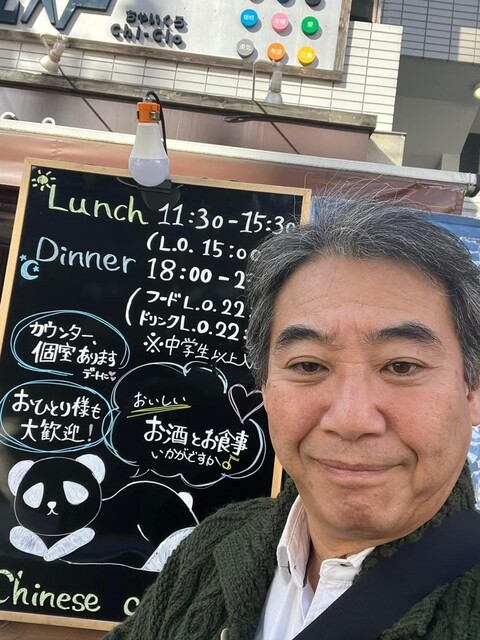 ちゃいくろ
chi-clo
Lunch 11:30-15:30
(L.O. 15:00
Dinner
18:00-2
フードL.O.22:
ドリンクL.O.22:
※中学生以上入
カウンター
個室あります
デートに♡
おひとり様も
大歓迎!
おいしい
お酒とお食事
いかがですか♪
Chinese